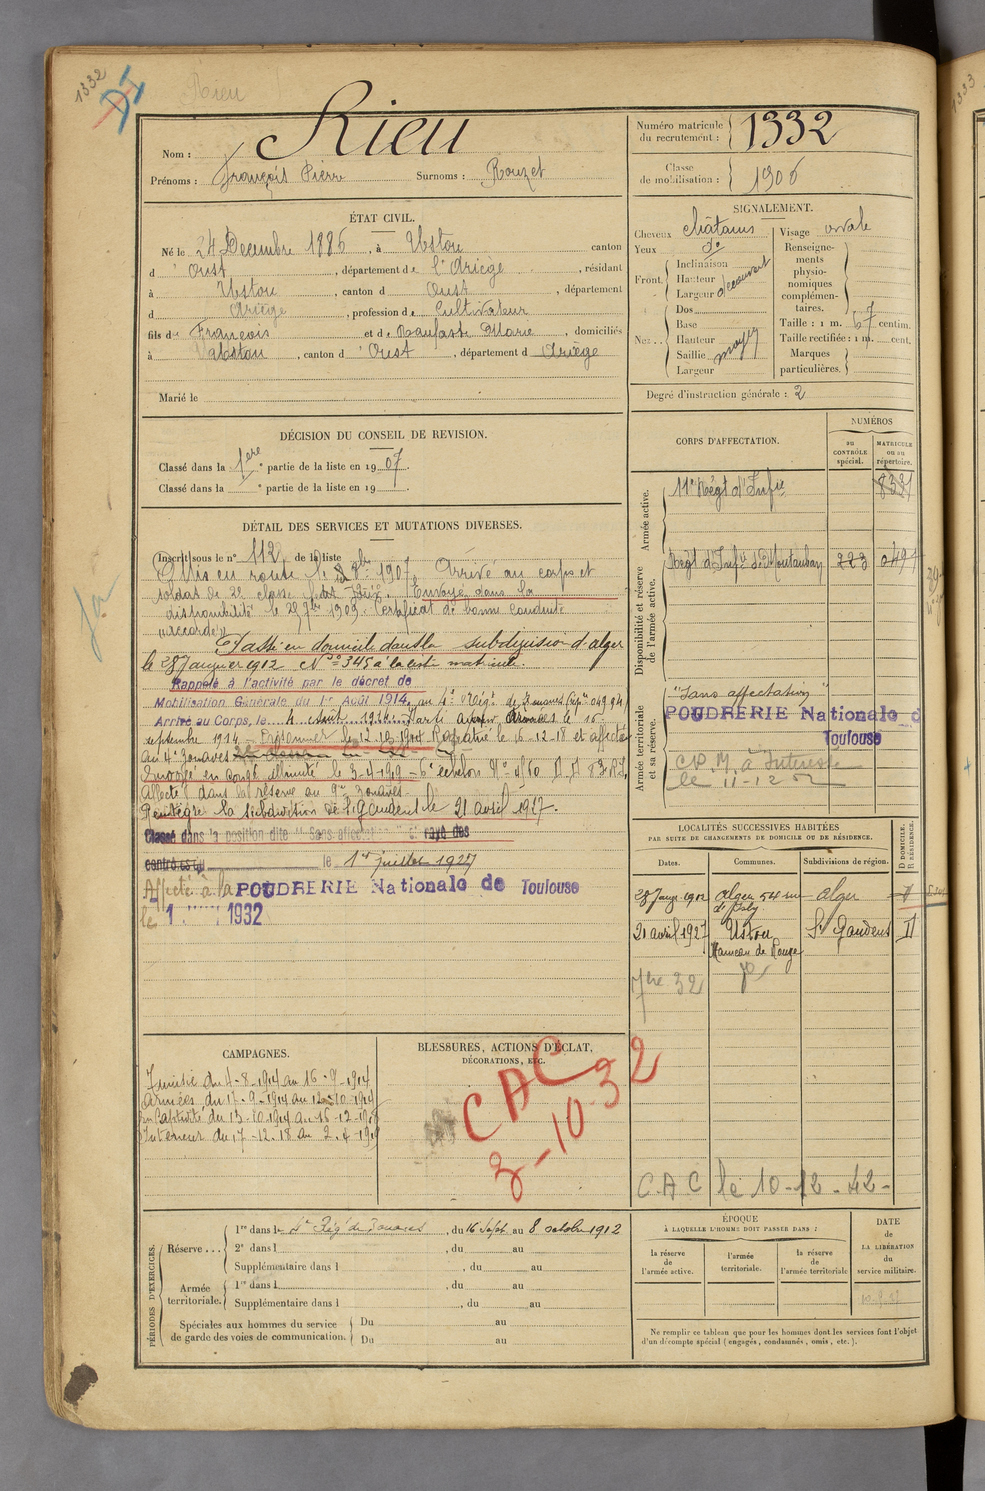 1332
Rieu
Nom : Rieu
Prénoms : François Pierre Surnoms : Rouzet
Numéro matricule du recrutement : 1332
Classe de mobilisation : 1906
ÉTAT CIVIL.
Né le 24 Decembre 1886, à Ustou canton
d'Oust, département de l'Ariège, résidant
à Ustou, canton d Oust, département
d Ariège, profession de Cultivateur
fils de François et de Bonfast Marie, domiciliés
à Ustou, canton d'Oust, département d Ariège
Marié le
SIGNALEMENT.
Cheveux châtains Visage ovale
Yeux do
Front. Inclinaison
Hauteur
Largeur découvert
Nez .. Dos
Base
Hauteur
Saillie moyen
Largeur
Renseignements physionomiques complémentaires.
Taille : 1 m. 67 centim.
Taille rectifiée : 1 m. cent.
Marques particulières.
Degré d'instruction générale : 2
DÉCISION DU CONSEIL DE REVISION.
Classé dans la 1ere partie de la liste en 1907.
Classé dans la e partie de la liste en 19
DÉTAIL DES SERVICES ET MUTATIONS DIVERSES.
Inscrit sous le n° 112 de la liste
Mis en route le 8 8bre 1907. Arrivé au corps et
soldat de 2e classe le dit jour. Envoyé dans la
disponibilité le 25 7bre 1909. Certificat de bonne conduite
"accordé"
Passé en domicile dans la subdivision d'alger
le 28 Janvier 1912 No 345 à la liste matricule.
Rappelé à l'activité par le décret de
Mobilisation Générale du 1er Août 1914, au 4e Rég. de Zouaves
Arrivé au Corps, le 4 Août 1914. Parti aux Armées le 16
septembre 1914. Prisonnier le 12-10-1914 Rapatrié le 16-12-18 et affecté
au 4e Zouaves
Envoyé en congé illimité le 3-4-1919 - 6e échelon
Affecté dans la réserve au 9e Zouaves.
Réintègre la subdivision de St Gaudens le 21 avril 1927.
Classé dans la position dite "Sans affectation" et rayé des
contrôles le 1er juillet 1927
Affecté à la POUDRERIE Nationale de Toulouse
le 1 1932
CORPS D'AFFECTATION.
NUMÉROS
au CONTRÔLE spécial.
MATRICULE ou au répertoire.
Armée active.
11e Régt d'Infie
Disponibilité et réserve de l'armée active.
Régt d'Infie de Montauban 223
Armée territoriale et sa réserve.
"Sans affectation"
POUDRERIE Nationale d
Toulouse
le 11-12
LOCALITÉS SUCCESSIVES HABITÉES
PAR SUITE DE CHANGEMENTS DE DOMICILE OU DE RÉSIDENCE.
Dates. Communes. Subdivisions de région. D DOMICILE. R RÉSIDENCE.
28 Janv. 1912 Alger 54 rue d'Isly Alger D
21 avril 1927 Ustou Hameau de Rouze St Gaudens D
7bre 32
C.A.C le 10-12-42-
CAMPAGNES.
Tunisie du 4-8-1914 au 16-9-1914
Armées du 17-9-1914 au 12-10-1914
En Captivité du 13-10-1914 au 16-12-1918
Intérieur du 17-12-18 au 2-4-1919
BLESSURES, ACTIONS D'ÉCLAT,
DÉCORATIONS, ETC.
CAC
3-10-32
PÉRIODES D'EXERCICES.
Réserve ...
1re dans le 4e Rég. de Zouaves, du 16 Sept. au 8 octobre 1912
2e dans l , du au
Supplémentaire dans l , du au
Armée territoriale.
1re dans l , du au
Supplémentaire dans l , du au
Spéciales aux hommes du service de garde des voies de communication.
Du au
Du au
ÉPOQUE
À LAQUELLE L'HOMME DOIT PASSER DANS :
la réserve de l'armée active.
l'armée territoriale.
la réserve de l'armée territoriale
DATE
de
LA LIBÉRATION
du
service militaire.
Ne remplir ce tableau que pour les hommes dont les services font l'objet
d'un décompte spécial (engagés, condamnés, omis, etc.).
1333